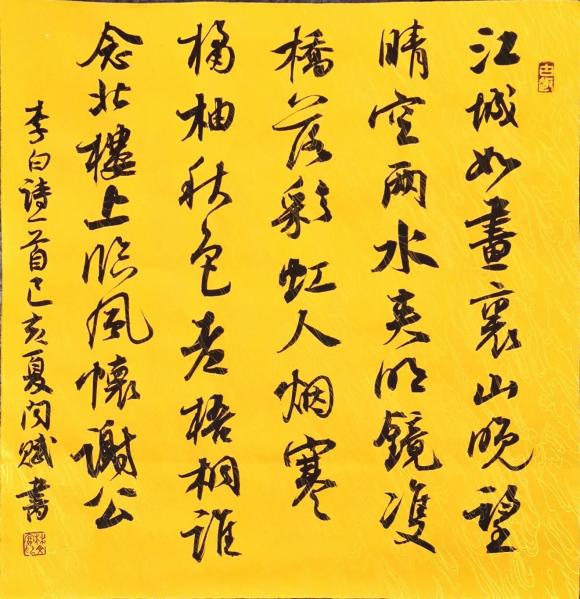 江城如畫裏山晚望
晴空兩水夾明鏡雙
橋落彩虹人烟寒
橘柚秋色老梧桐誰
念北樓上臨風懷謝公
李白詩一首己亥夏闰赋書